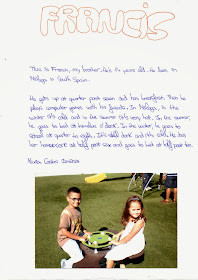 FRANCIS
This is Francis, my brother. He's 14 years old. He lives in
Málaga in South Spain.
He gets up at quarter past seven and has breakfast. Then he
plays computer games with his friends. In Málaga, in the
winter it's cold and in the summer it's very hot. In the summer,
he goes to bed at o'clock. In the winter, he goes to
school at quarter to eight. It's cold and it's He does
his homework at half past six and goes to bed at half past ten.
Nuria Castro Jiménez